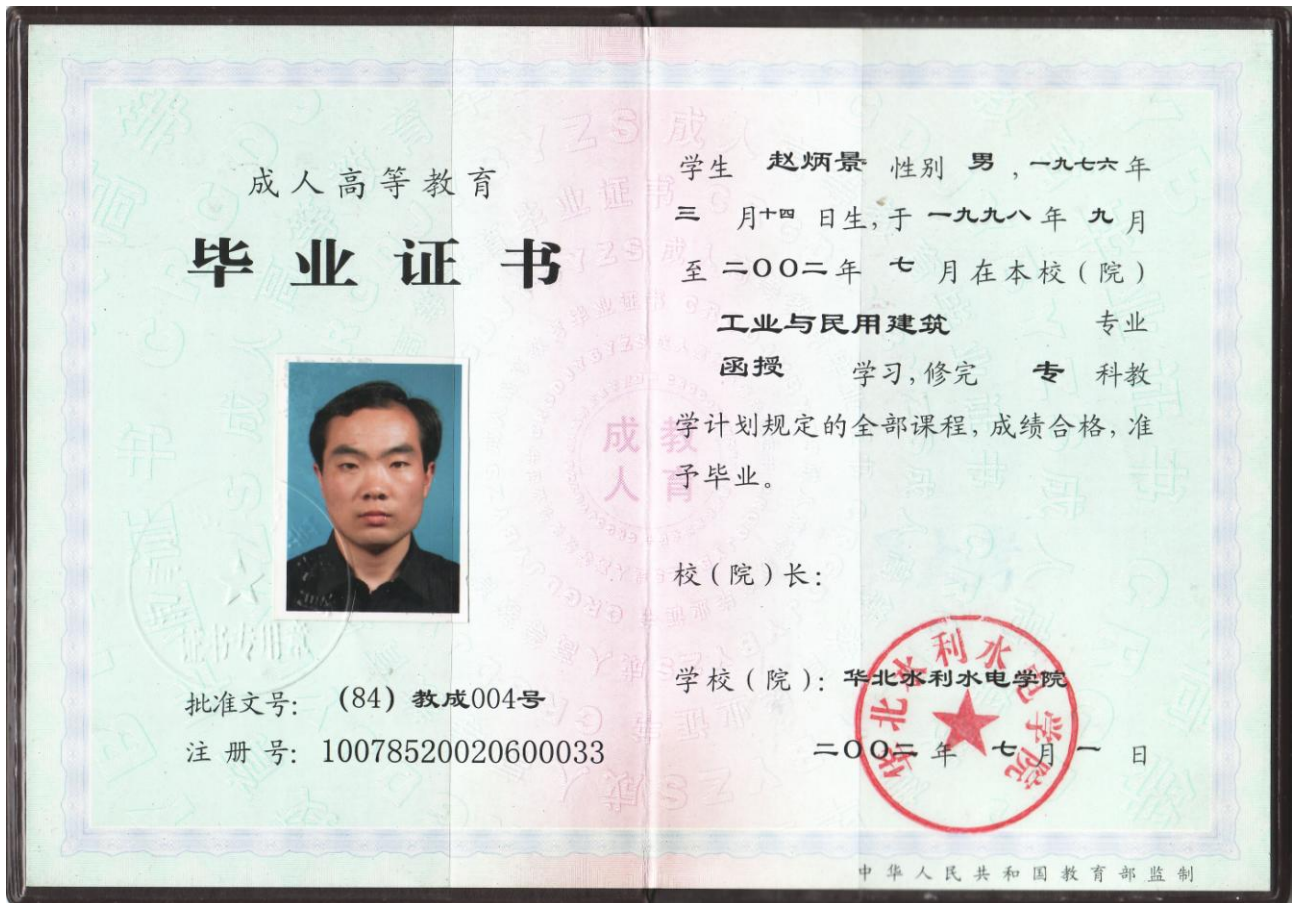 成人高等教育
毕业证书
证书专用章
批准文号: (84) 教成004号
注册号: 10078520020600033
学生 赵炳景 性别 男 , 一九七六年
三 月十四 日生, 于 一九九八年 九月
至 二〇〇二年 七 月在本校(院)
工业与民用建筑 专业
函授 学习, 修完 专 科教
学计划规定的全部课程, 成绩合格, 准
予毕业。
校(院)长:
学校(院): 华北水利水电学院
二〇〇二年 七月一日
华北水利水电学院
成教
人育
中华人民共和国教育部监制